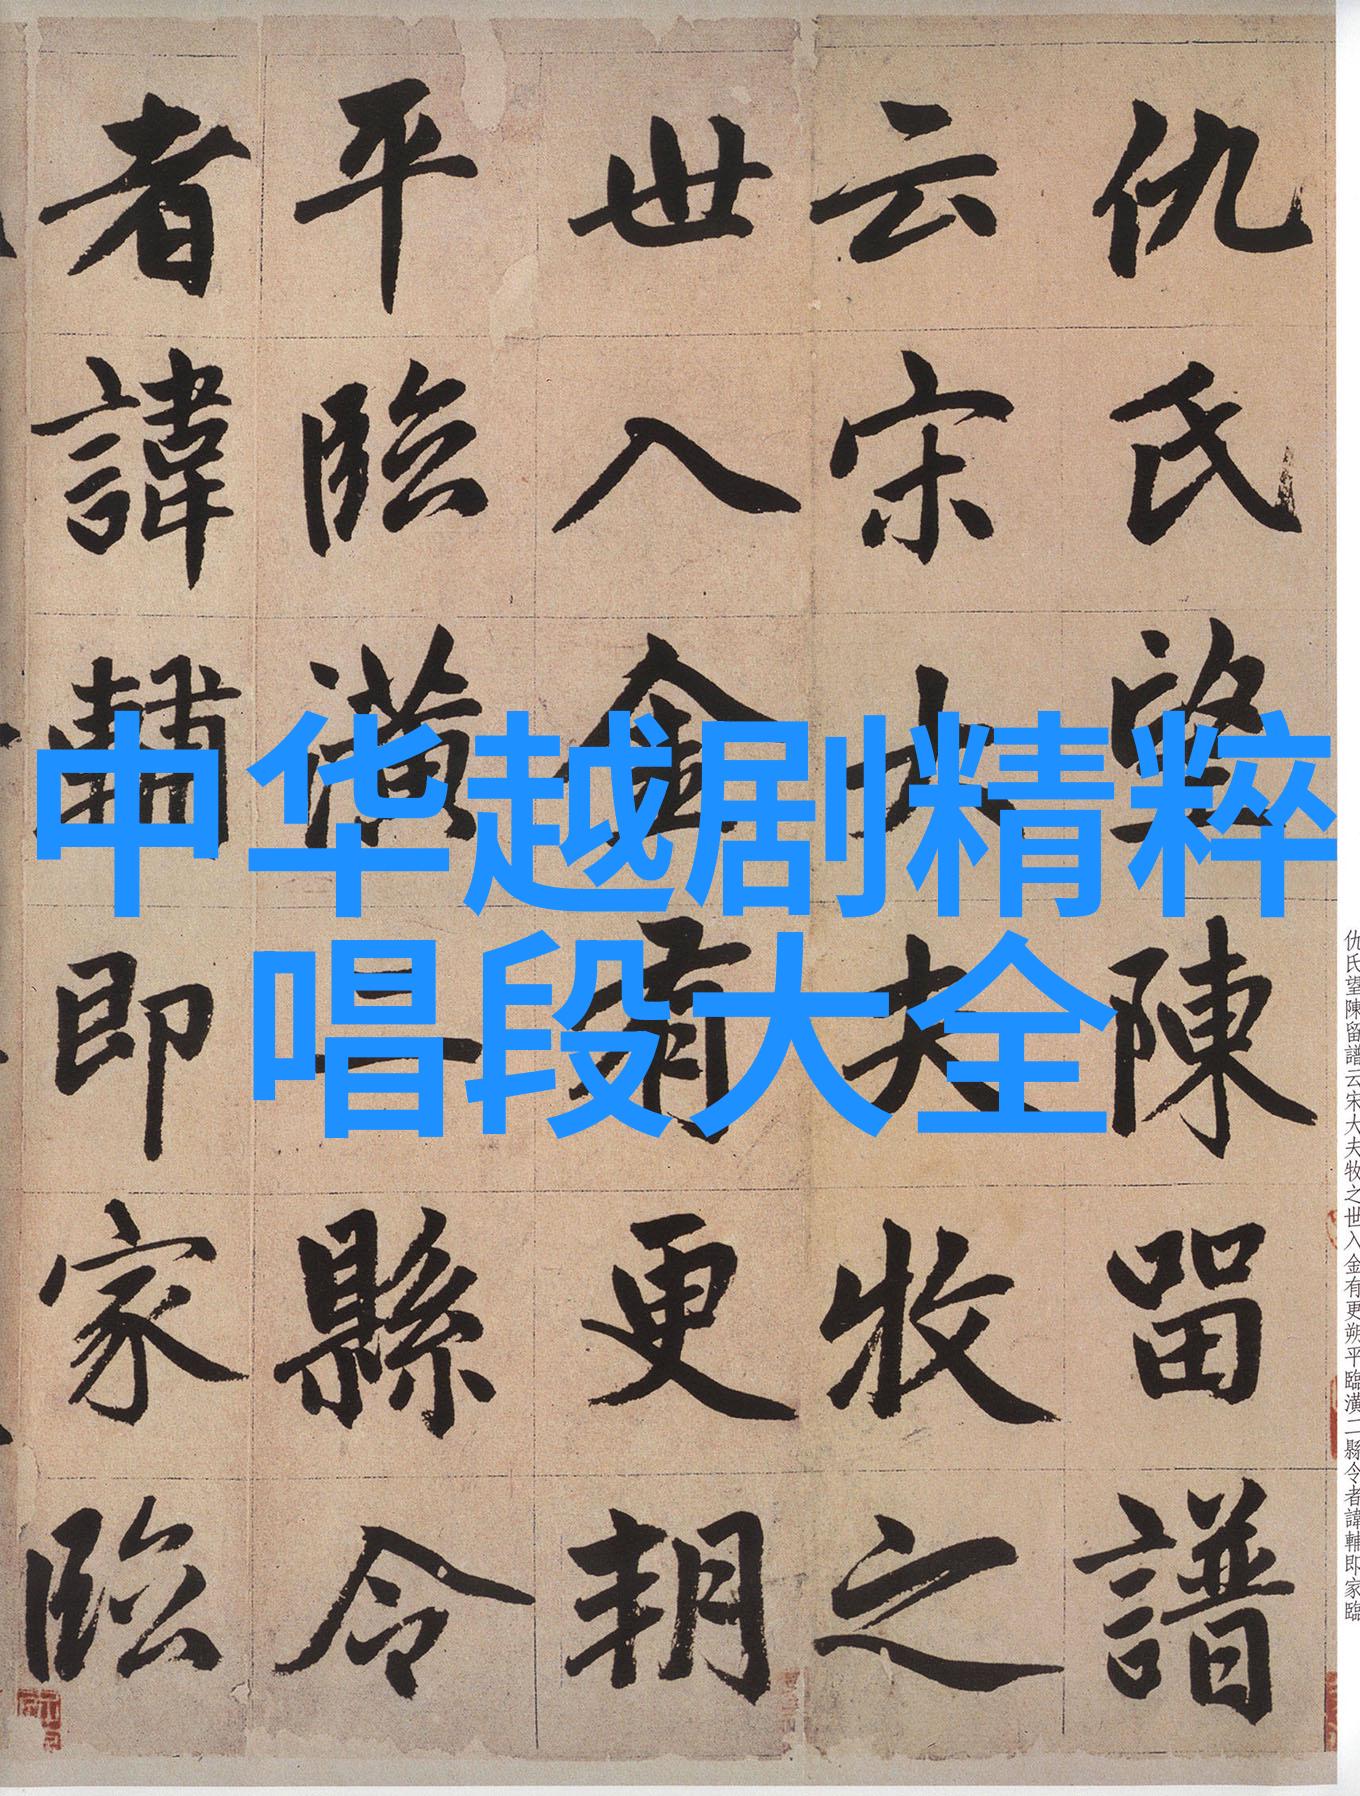 中华越剧精粹
唱段大全
仇氏望陳留譜
云宋大夫牧之
世入金有更朔
平臨潢二縣令
者諱輔即家臨
仇氏望陳留譜云宋大夫牧之世入金有更朔平臨潢二縣令者諱輔即家臨